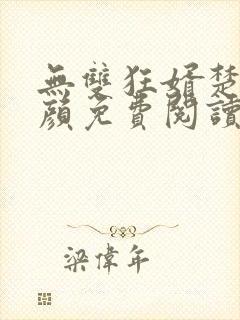 無雙狂婿楚
顏免費閱讀
梁偉年